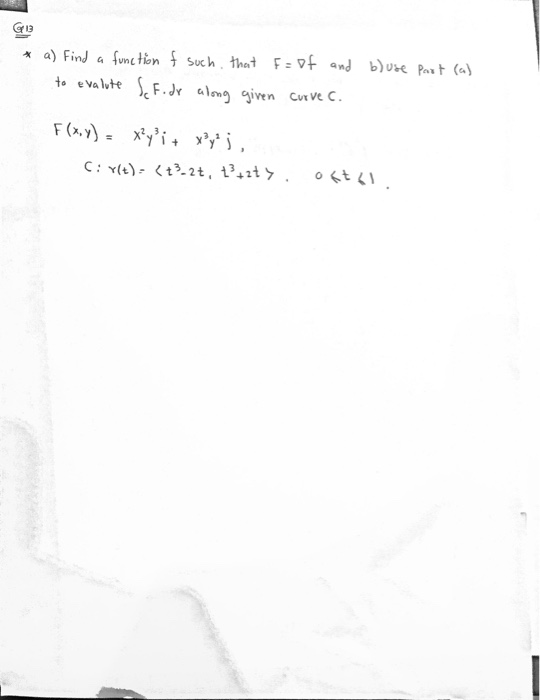 Q13
* a) Find a function f such. that F = ∇f and b) Use Part (a)
to evalute ∫c F.dr along given curve C.
F(x,y) = x²y³i + x³y²j,
C: r(t) = <t³-2t, t³+2t>. 0≤t≤1.